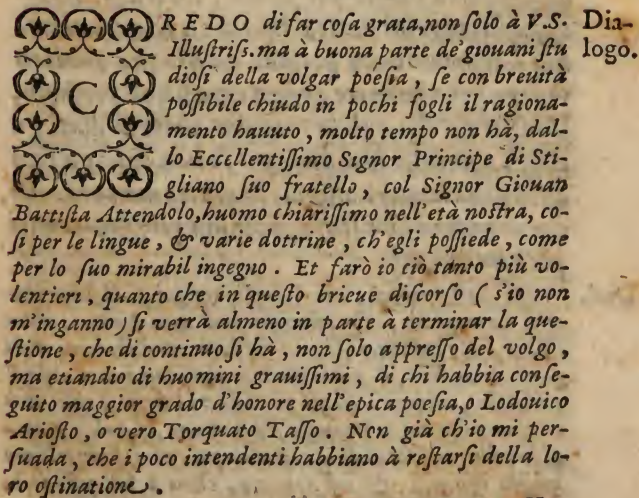 CREDO di far coſa grata, non ſolo à V.S. Dia-
Illuſtriſs. ma à buona parte de' giouani ſtu logo.
dioſi della volgar poeſia, ſe con breuità
poſſibile chiudo in pochi fogli il ragiona-
mento hauuto, molto tempo non hà, dal-
lo Eccellentiſſimo Signor Principe di Sti-
gliano ſuo fratello, col Signor Giouan
Battiſta Attendolo, huomo chiariſſimo nell'età noſtra, co-
ſi per le lingue, & varie dottrine, ch'egli poſſiede, come
per lo ſuo mirabil ingegno. Et farò io ciò tanto più vo-
lentieri, quanto che in queſto brieue diſcorſo (s'io non
m'inganno) ſi verrà almeno in parte à terminar la que-
ſtione, che di continuo ſi hà, non ſolo appreſſo del volgo,
ma etiandio di huomini grauiſſimi, di chi habbia conſe-
guito maggior grado d'honore nell'epica poeſia, o Lodouico
Arioſto, o vero Torquato Taſſo. Non già ch'io mi per-
ſuada, che i poco intendenti habbiano à reſtarſi della lo-
ro oſtinatione.